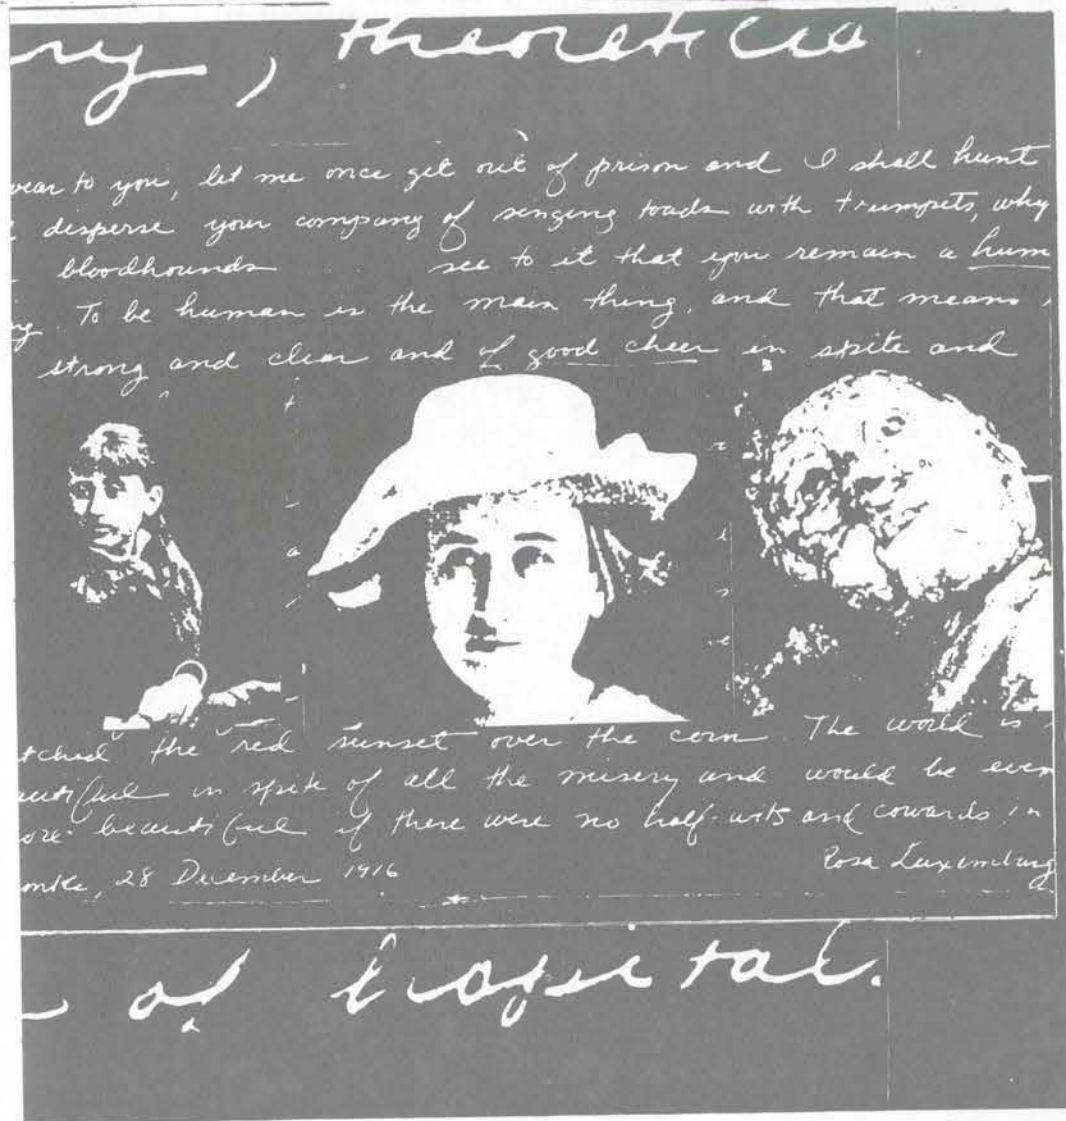 ry, theoretica
wear to you, let me once get out of prison and I shall hunt
disperse your company of singing toads with trumpets, why
bloodhounds see to it that you remain a hum
ng. To be human is the main thing, and that means
strong and clear and of good cheer in spite and
tched the red sunset over the corn. The world is
autiful in spite of all the misery and would be even
ore beautiful if there were no half-wits and cowards in
onke, 28 December 1916 Rosa Luxemburg
of